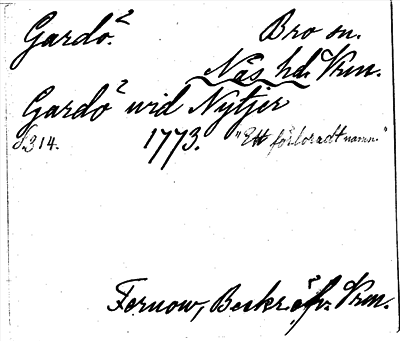 Gardö.² Bro sn.
Näs hd. Vrm.
Gardö² wid Nytjer
S. 314. 1773. "Ett förloradt namn."
Fernow, Beskr. öfv. Vrm.